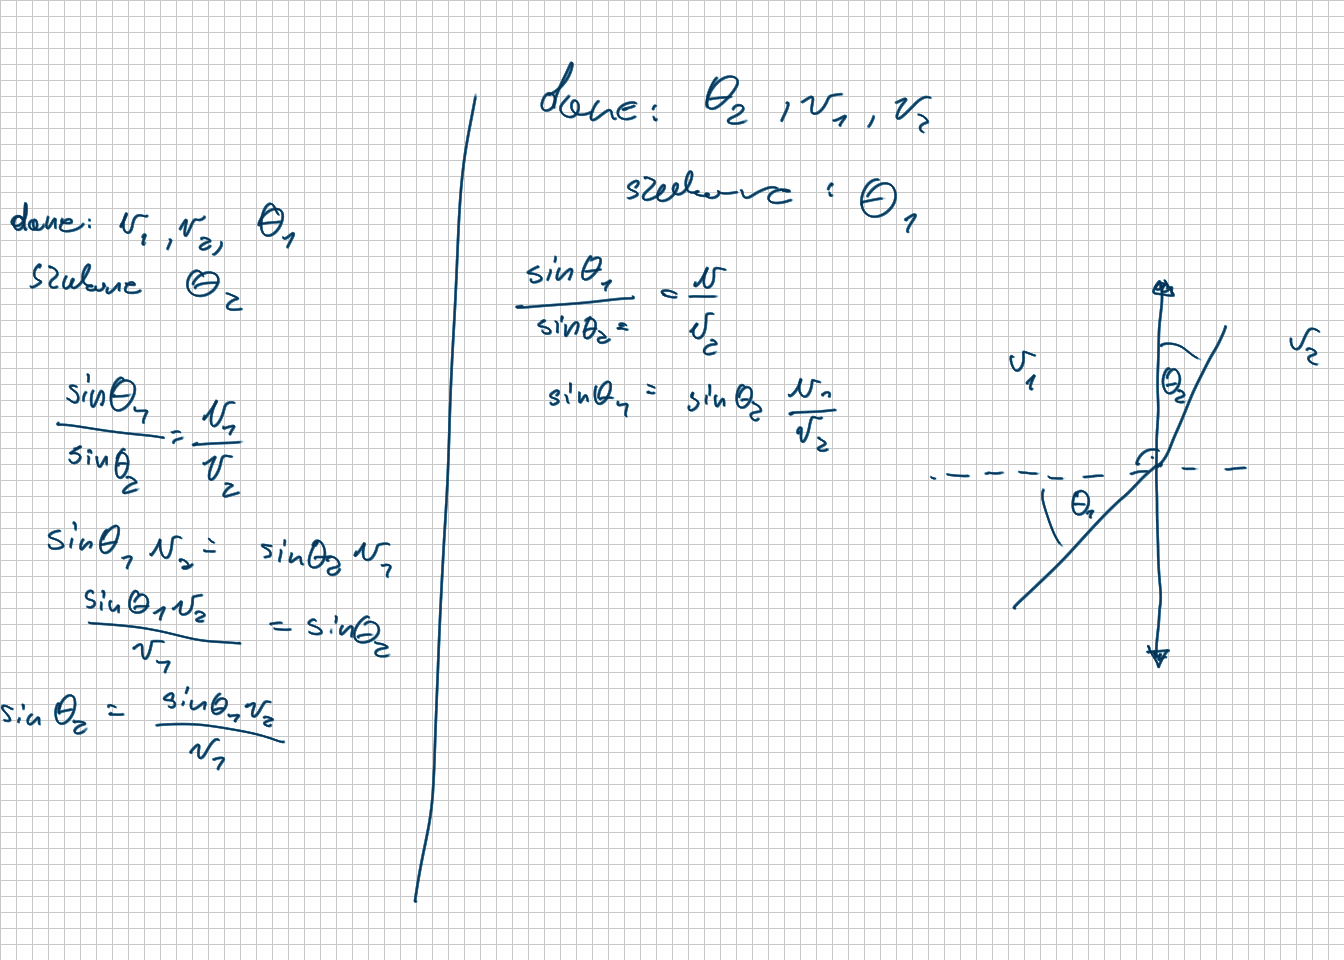 dane: v₁, v₂, θ₁
szukane θ₂
sinθ₁/sinθ₂ = v₁/v₂
sinθ₁ v₂ = sinθ₂ v₁
sinθ₁ v₂/v₁ = sinθ₂
sin θ₂ = sinθ₁ v₂/v₁
dane: θ₂, v₁, v₂
szukane : θ₁
sinθ₁/sinθ₂ = v/v₂
sinθ₁ = sinθ₂ v₁/v₂
v₁
v₂
θ₂
θ₁